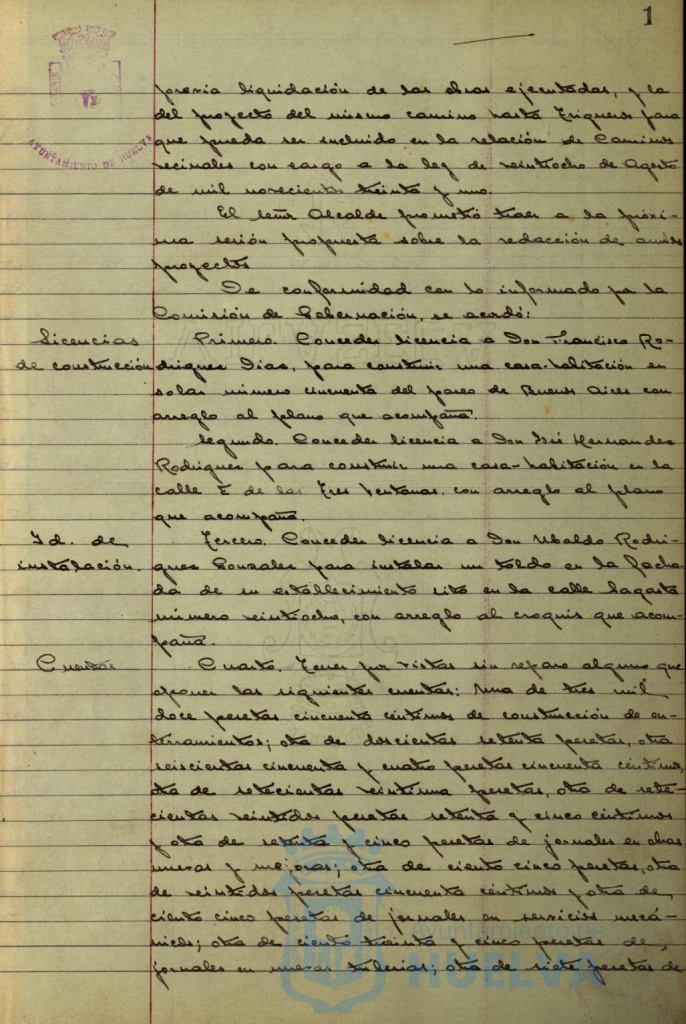 1
AYUNTAMIENTO DE HUELVA
previa liquidación de las obras ejecutadas, y la
del proyecto del mismo camino hasta Trigueros para
que pueda ser incluido en la relación de Caminos
vecinales con cargo a la ley de veintiocho de Agosto
de mil novecientos treinta y uno.
El señor Alcalde prometió traer a la próxi-
ma sesión propuesta sobre la redacción de ambos
proyectos
De conformidad con lo informado por la
Comisión de Gobernación, se acordó:
Licencias
de construcción
Primero. Conceder licencia a Don Francisco Ro-
driguez Dias, para construir una casa-habitación en
solar número cincuenta del paseo de Buenos Aires con
arreglo al plano que acompaña.
Segundo. Conceder licencia a Don José Hernandez
Rodriguez para construir una casa-habitación en la
calle E de las Tres Ventanas, con arreglo al plano
que acompaña.
Id. de
instalación.
Tercero. Conceder licencia a Don Ubaldo Rodri-
guez Gonzalez para instalar un toldo en la facha-
da de su establecimiento sito en la calle Sagasta
número veintiocho, con arreglo al croquis que acom-
paña.
Cuentas
Cuarto. Tener por vistas sin reparo alguno que
oponer las siguientes cuentas: Una de tres mil
doce pesetas cincuenta céntimos de construcción de en-
terramientos; otra de doscientas setenta pesetas, otra
seiscientas cincuenta y cuatro pesetas cincuenta céntimos,
otra de setecientas veintiuna pesetas, otra de sete-
cientas veintidos pesetas setenta y cinco céntimos
y otra de setenta y cinco pesetas de jornales en obras
nuevas y mejoras; otra de ciento cinco pesetas, otra
de veintidos pesetas cincuenta céntimos y otra de
ciento cinco pesetas de jornales en servicios mecá-
nicos; otra de ciento treinta y cinco pesetas de
jornales en nuevas tuberias; otra de siete pesetas de
Ayuntamiento de
HUELVA